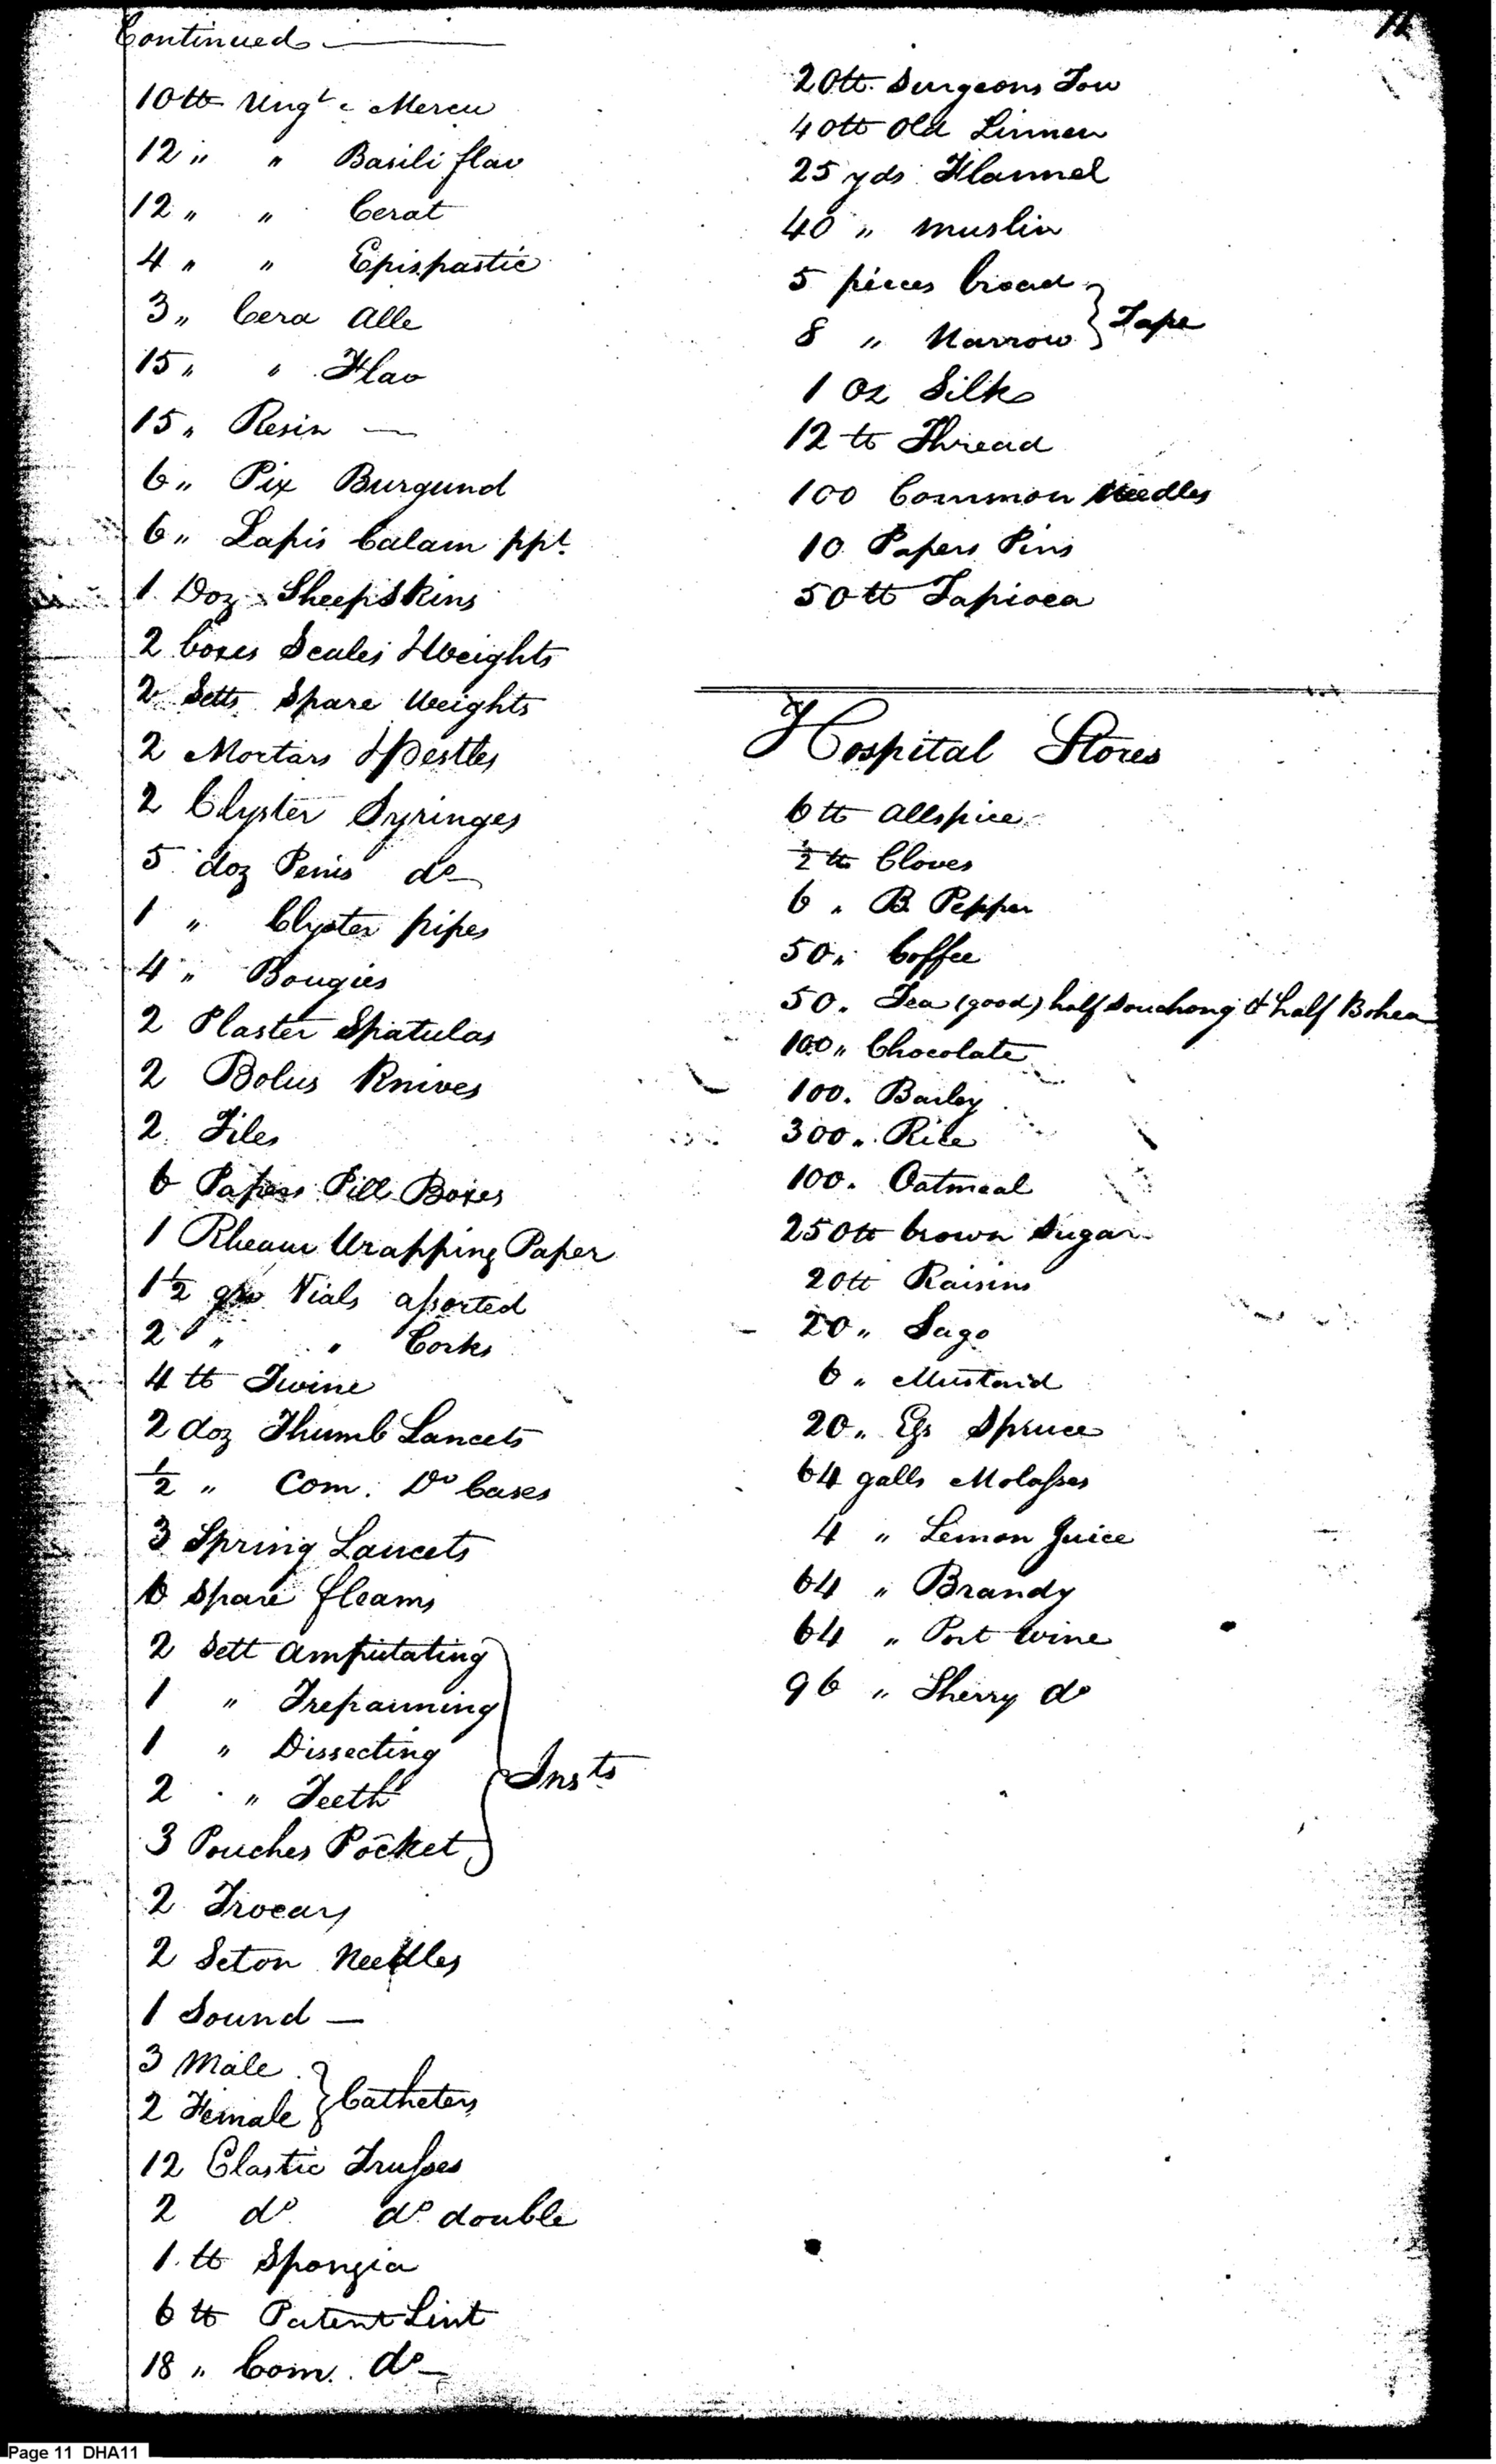 Continued
10 lb Ungt. Mercu
12 " " Basili flav
12 " " Cerat
4 " " Epispastic
3 " Cera Alle
15 " " Flav
15 " Resin —
6 " Pix Burgund
6 " Lapis Calam ppt.
1 Doz Sheepskins
2 boxes Scales & Weights
2 Setts Spare Weights
2 Mortars & Pestles
2 Clyster Syringes
5 doz Penis do
1 " Clyster pipes
4 " Bougies
2 Plaster Spatulas
2 Bolus Knives
2 Tiles
6 Papers Pill Boxes
1 Rheam Wrapping Paper
1½ gro Vials assorted
2 " " Corks
4 lb Twine
2 doz Thumb Lancets
½ " Com. Do Cases
3 Spring Lancets
6 Spare fleams
2 Sett Amputating
1 " Trepanning
1 " Dissecting
2 " Teeth
3 Pouches Pocket
Insts
2 Trocars
2 Seton Needles
1 Sound —
3 Male
2 Female
Catheters
12 Elastic Trusses
2 do do double
1 lb Spongia
6 lb Patent Lint
18 " Com. do
11
20 lb Surgeons Tow
40 lb Old Linnen
25 yds Flannel
40 " muslin
5 pieces broad
8 " Narrow
Tape
1 Oz Silk
12 lb Thread
100 Common Needles
10 Papers Pins
50 lb Tapioca
Hospital Stores
6 lb Allspice
½ lb Cloves
6 " B. Pepper
50 " Coffee
50 " Tea (good) half Souchong & half Bohea
100 " Chocolate
100 " Barley
300 " Rice
100 " Oatmeal
250 lb brown Sugar
20 lb Raisins
20 " Sago
6 " Mustard
20 " Ess Spruce
64 galls Molasses
4 " Lemon Juice
64 " Brandy
64 " Port wine
96 " Sherry do
Page 11 DHA11